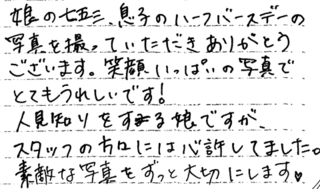 娘の七五三、息子のハーフバースデーの
写真を撮っていただきありがとう
ございます。笑顔いっぱいの写真で
とてもうれしいです!
人見知りをする娘ですが、
スタッフの方々には心許してました。
素敵な写真をずっと大切にします♥